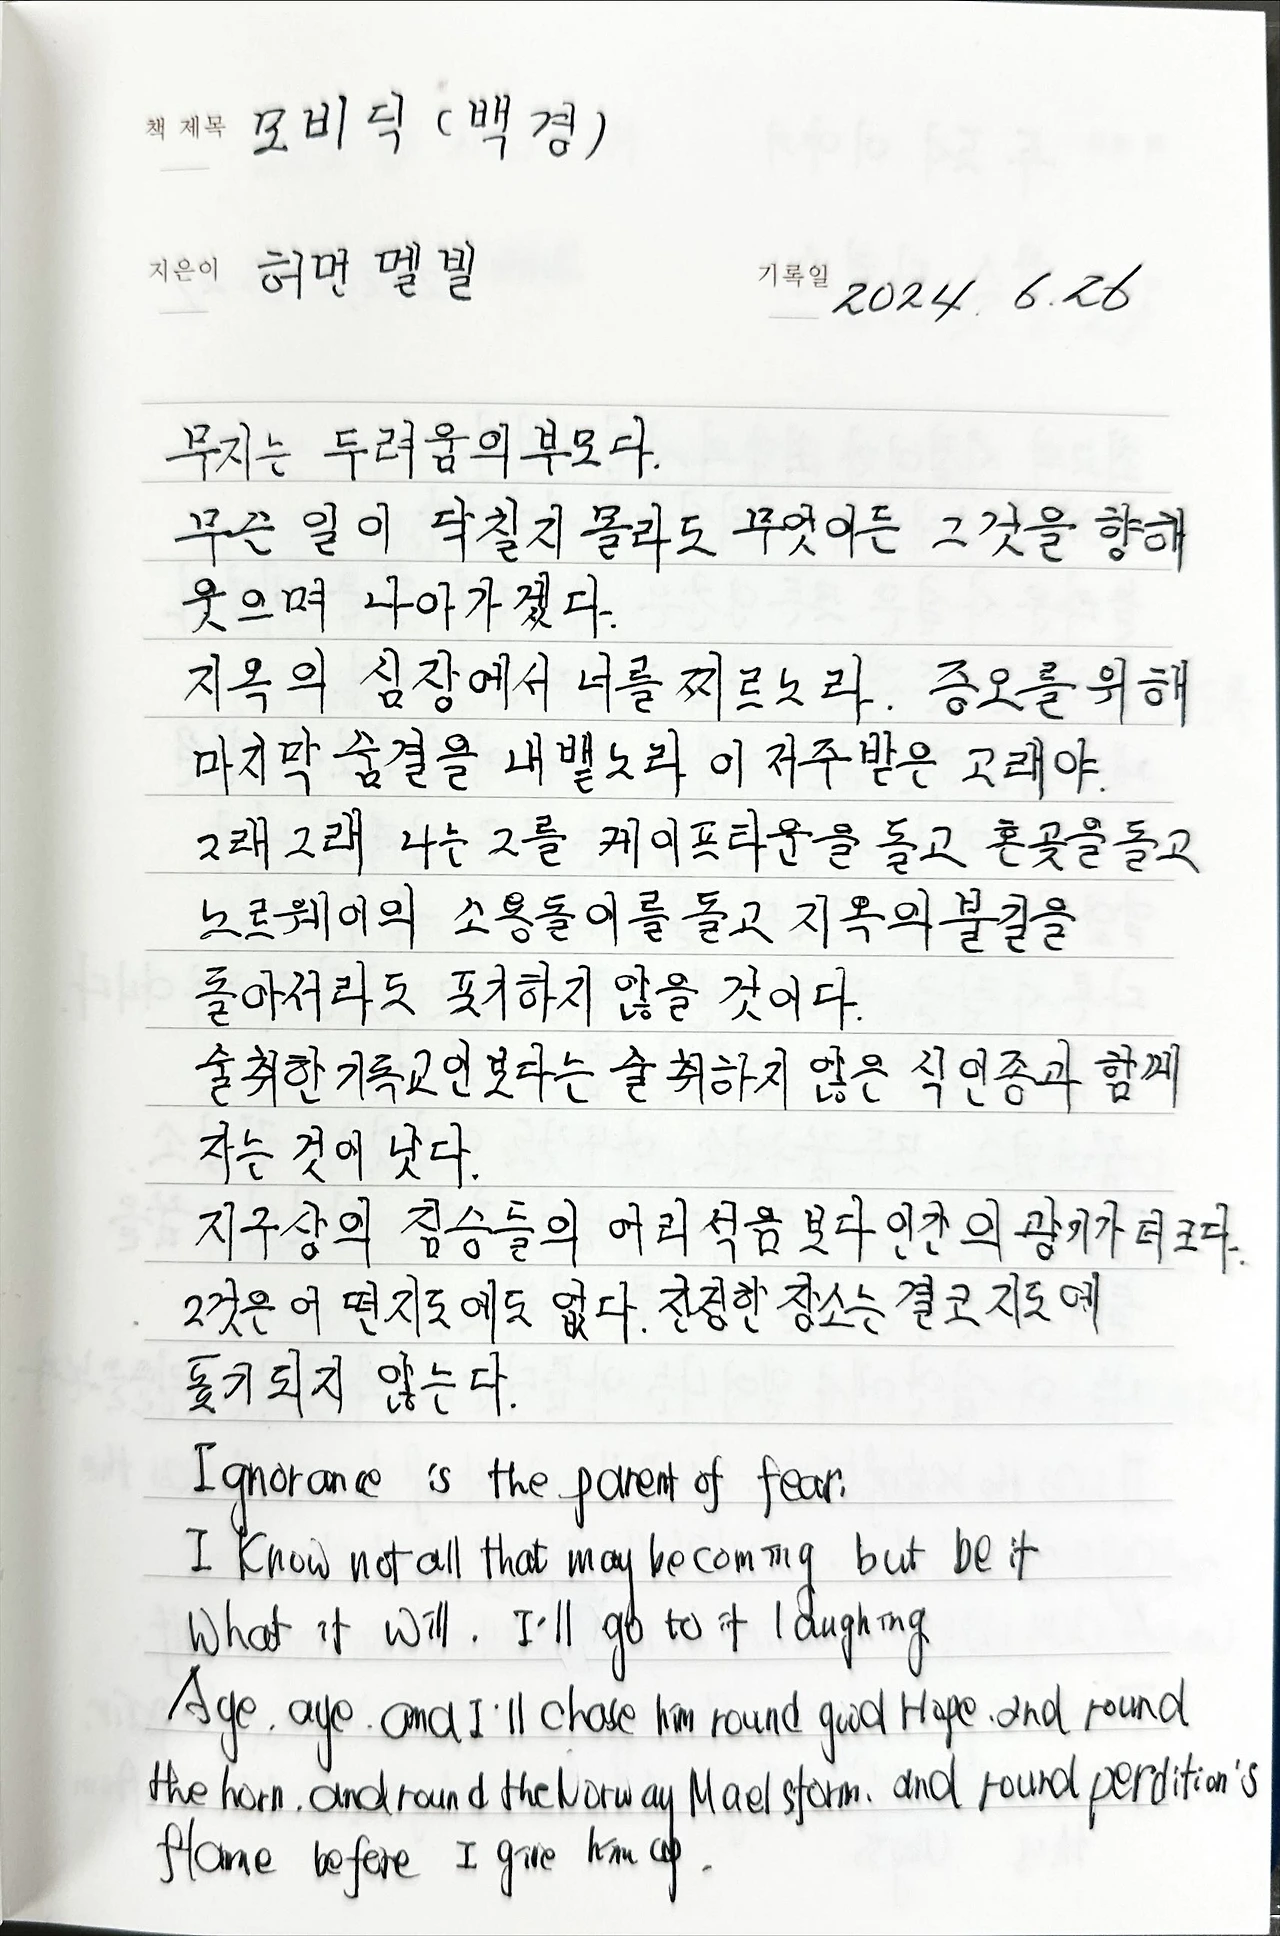 책 제목 모비딕 (백경)
지은이 허먼 멜빌 기록일 2024. 6. 26
무지는 두려움의 부모다.
무슨 일이 닥칠지 몰라도 무엇이든 그것을 향해
웃으며 나아가겠다.
지옥의 심장에서 너를 찌르노라. 증오를 위해
마지막 숨결을 내뱉노라 이 저주받은 고래야.
그래 그래 나는 그를 케이프타운을 돌고 혼곶을 돌고
노르웨이의 소용돌이를 돌고 지옥의 불길을
돌아서라도 포기하지 않을 것이다.
술 취한 기독교인보다는 술 취하지 않은 식인종과 함께
자는 것이 낫다.
지구상의 짐승들의 어리석음보다 인간의 광기가 더 크다.
그것은 어떤 지도에도 없다. 진정한 장소는 결코 지도에
표기되지 않는다.
Ignorance is the parent of fear.
I Know not all that may be coming but be it
What it will. I'll go to it laughing
Age. aye. and I'll chase him round good Hope. and round
the horn. and round the Norway Maelstorm. and round perdition's
flame before I give him up.